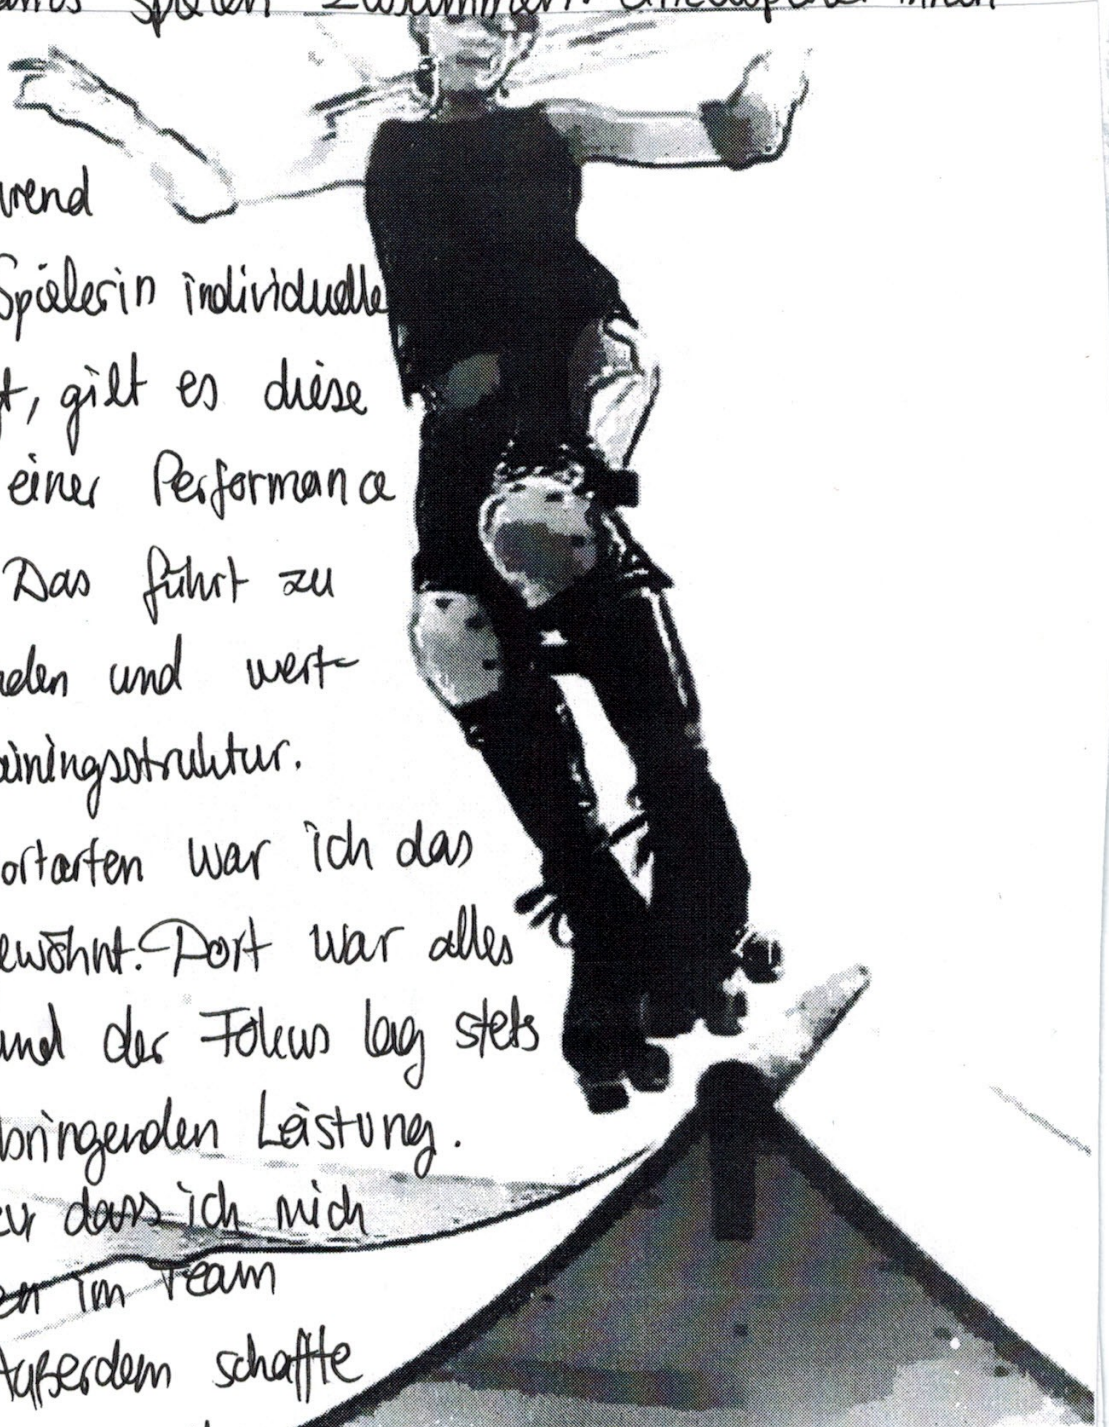 spielen zusammen.
Spielerin individuelle
gilt es diese
einer Performance
Das führt zu
und wert-
ainingsstruktur.
ortarten war ich das
ewöhnt. Dort war alles
und der Fokus lag stets
bringenden Leistung.
dass ich mich
im Team
Außerdem schaffte